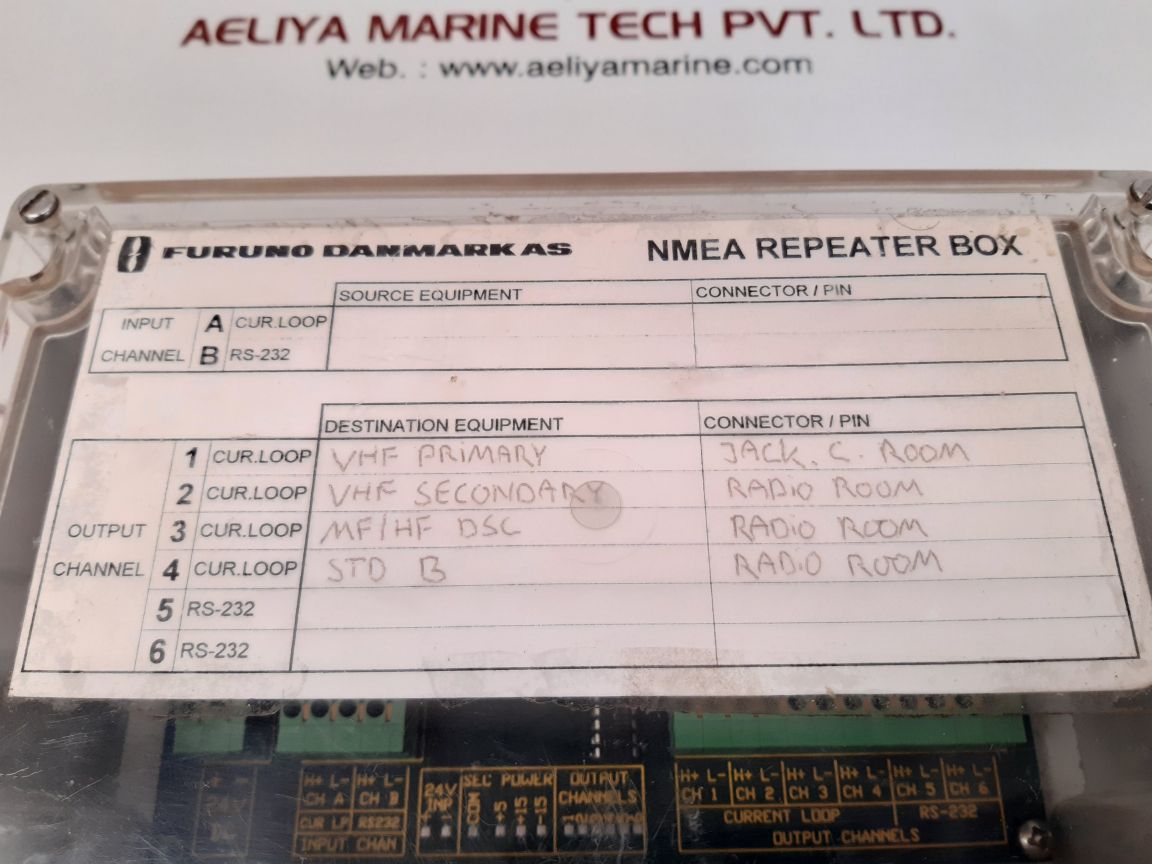 AELIYA MARINE TECH PVT. LTD.
Web. : www.aeliyamarine.com
FURUNO DANMARK AS NMEA REPEATER BOX
SOURCE EQUIPMENT CONNECTOR / PIN
INPUT A CUR.LOOP
CHANNEL B RS-232
DESTINATION EQUIPMENT CONNECTOR / PIN
1 CUR.LOOP VHF PRIMARY JACK. C. ROOM
2 CUR.LOOP VHF SECONDARY RADIO ROOM
OUTPUT 3 CUR.LOOP MF/HF DSC RADIO ROOM
CHANNEL 4 CUR.LOOP STD B RADIO ROOM
5 RS-232
6 RS-232
+ - H+ L- H+ L- SEC POWER OUTPUT H+ L- H+ L- H+ L- H+ L- H+ L- H+ L-
24V CH A CH B 24V INP COM +5 +15 -15 CHANNELS CH 1 CH 2 CH 3 CH 4 CH 5 CH 6
CUR LP RS232 CURRENT LOOP RS-232
INPUT CHAN OUTPUT CHANNELS